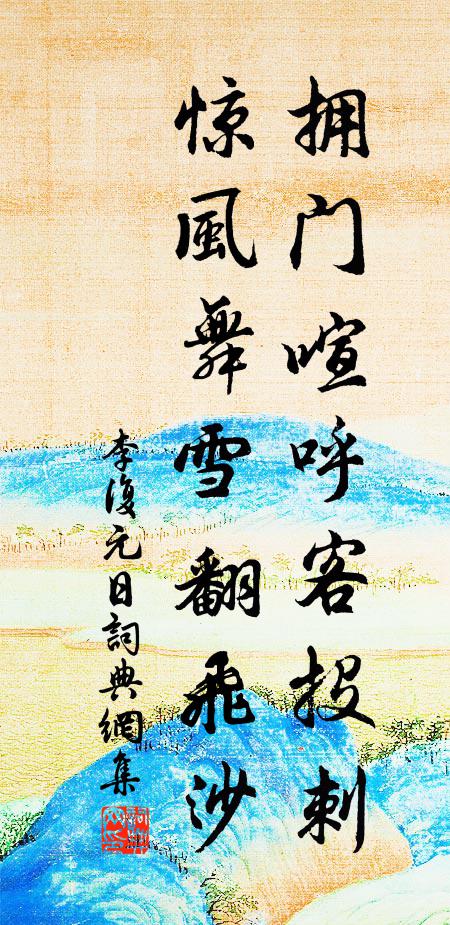 拥门喧呼客投刺
惊風舞雪翻飛沙
李復元日詞典網集